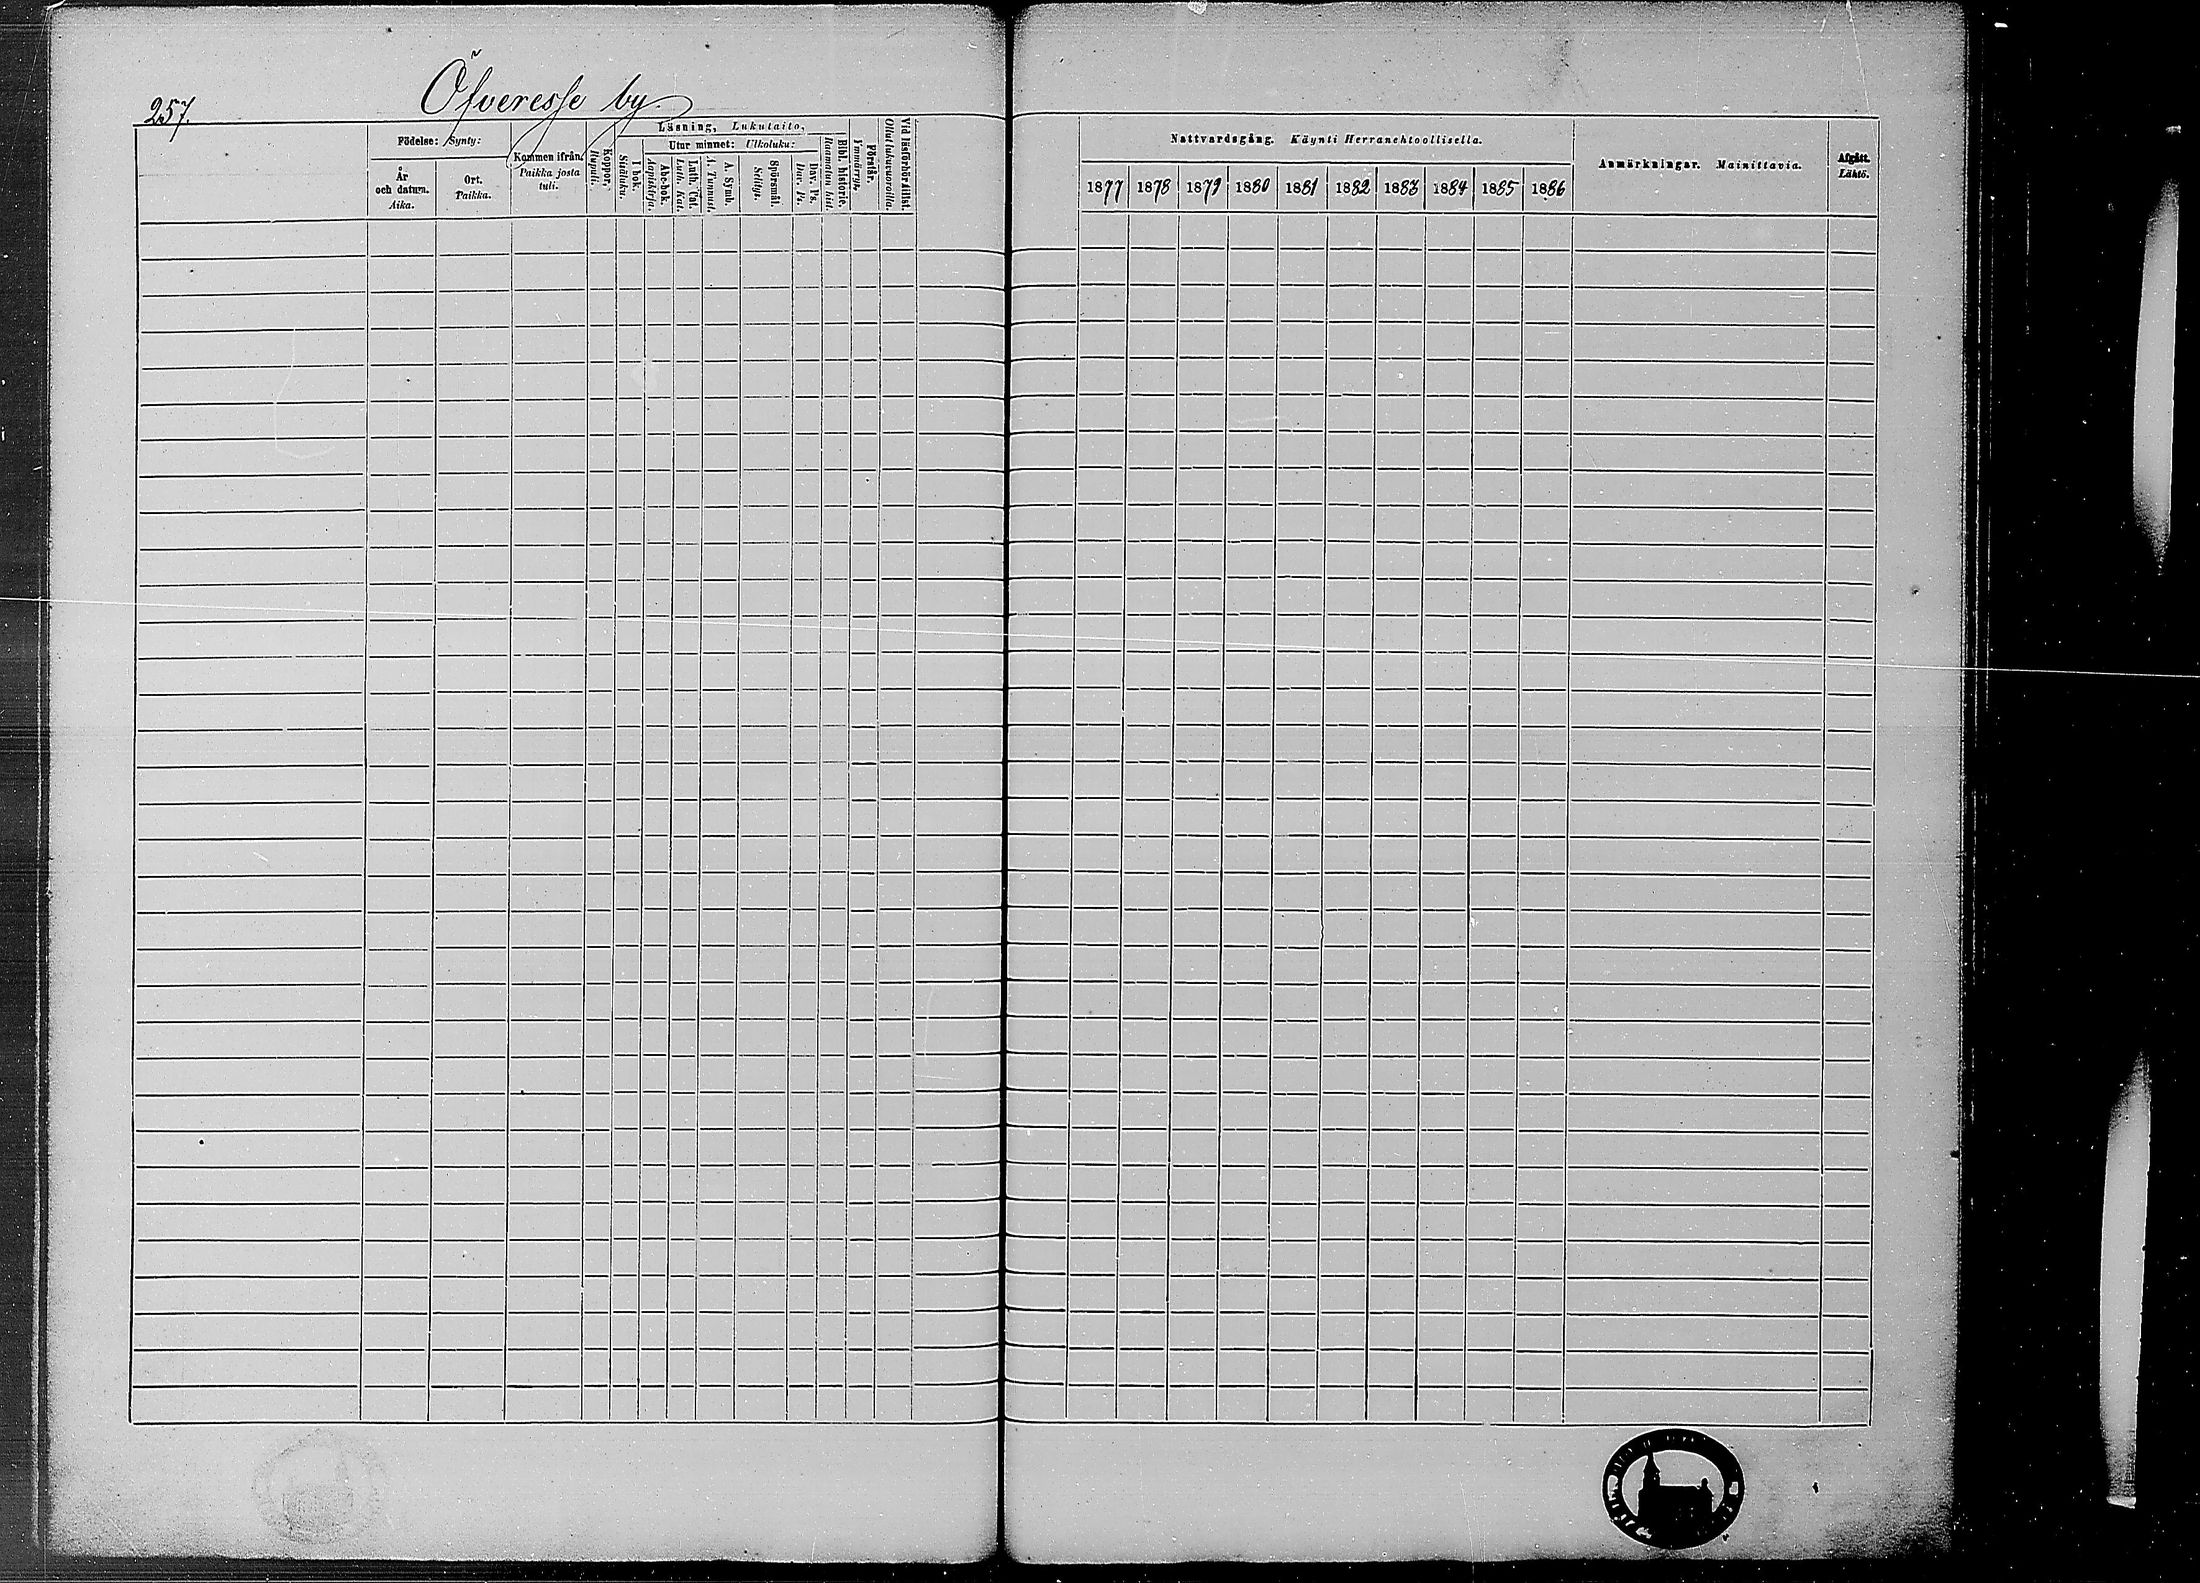 257.
Öfveresse by.
Födelse: Synty:
År och datum. Aika.
Ort. Paikka.
Kommen ifrån. Paikka josta tuli.
Koppor. Rupuli.
Läsning, Lukutaito,
I bok. Sisäluku.
Utur minnet: Ulkoluku:
Abc-bok. Aapiskirja.
Luth. Cat. Luth. Kat.
A. Symb. A. Tunnust.
Spörsmål. Selitys.
Dav. Ps. Dav. Ps.
Bibl. historie. Raamatun hist.
Förstår. Ymmärrys.
Vid läsförhör tillst. Ollut lukuvuoroilla.
Nattvardsgång. Käynti Herranehtoollisella.
1877 1878 1879 1880 1881 1882 1883 1884 1885 1886
Anmärkningar. Mainittavia.
Afgått. Lähtö.